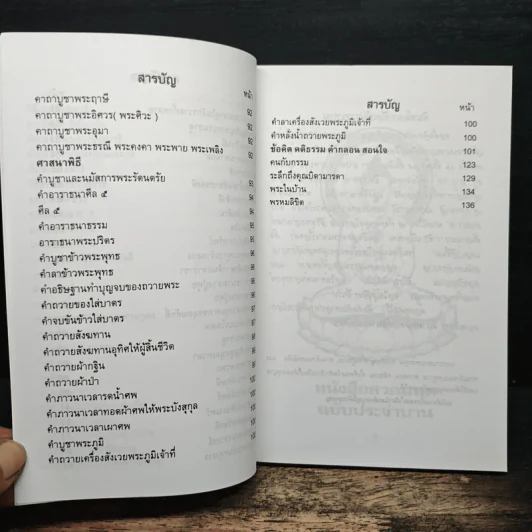 สารบัญ
หน้า
คาถาบูชาพระฤาษี
คาถาบูชาพระอิศวร( พระศิวะ ) 92
คาถาบูชาพระอุมา 92
คาถาบูชาพระธรณี พระคงคา พระพาย พระเพลิง 92
ศาสนาพิธี
คำบูชาและนมัสการพระรัตนตรัย 93
คำอาราธนาศีล ๕ 94
ศีล ๕ 94
คำอาราธนาธรรม 95
อาราธนาพระปริตร 95
คำบูชาข้าวพระพุทธ 96
คำลาข้าวพระพุทธ 96
คำอธิษฐานทำบุญจบของถวายพระ 96
คำถวายของใส่บาตร 97
คำจบขันข้าวใส่บาตร 97
คำถวายสังฆทาน
คำถวายสังฆทานอุทิศให้ผู้สิ้นชีวิต
คำถวายผ้ากฐิน
คำถวายผ้าป่า
คำภาวนาเวลารดน้ำศพ 100
คำภาวนาเวลาทอดผ้าศพให้พระบังสุกุล
คำภาวนาเวลาเผาศพ
คำบูชาพระภูมิ
คำถวายเครื่องสังเวยพระภูมิเจ้าที่
สารบัญ
หน้า
คำลาเครื่องสังเวยพระภูมิเจ้าที่ 100
คำหลั่งน้ำถวายพระภูมิ 100
ข้อคิด คติธรรม คำกลอน สอนใจ 101
คนกับกรรม 123
ระลึกถึงคุณบิดามารดา 129
พระในบ้าน 134
พรหมลิขิต 136